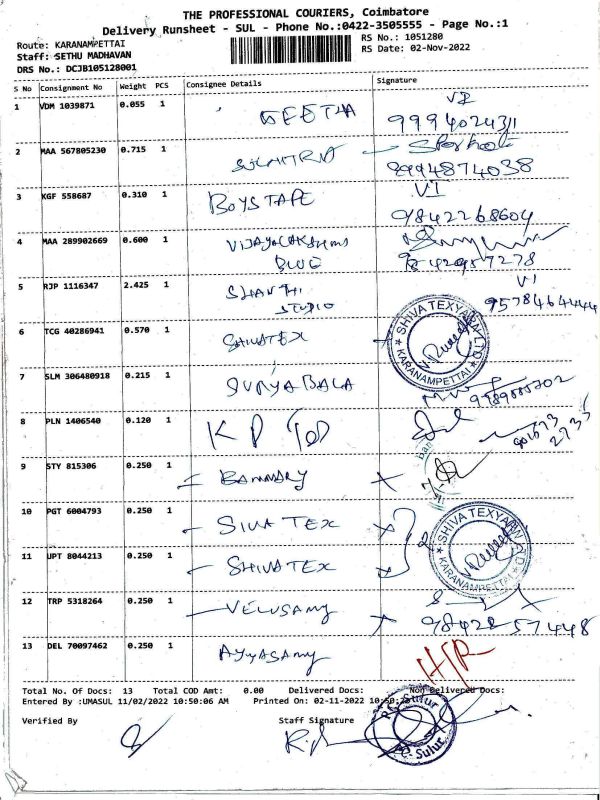 THE PROFESSIONAL COURIERS, Coimbatore
Delivery Runsheet - SUL - Phone No.:0422-3505555 - Page No.:1
Route: KARANAMPETTAI
RS No.: 1051280
Staff: SETHU MADHAVAN
RS Date: 02-Nov-2022
DRS No.: DCJB105128001
S No Consignment No Weight PCS Consignee Details Signature
1 VDM 1039871 0.055 1 GEETHA
9994024311
2 MAA 567805230 0.715 1
9994874038
3 KGF 558687 0.310 1 BOYSTAPE VI
9842268604
4 MAA 289902669 0.600 1
5 RJP 1116347 2.425 1 SHANTHI STUDIO VI
9578464444
6 TCG 40286941 0.570 1 SHIVATEX
SHIVA TEXYARN LTD
KARANAMPETTAI
7 SLM 306480918 0.215 1 SURYABALA
8 PLN 1406540 0.120 1 K P
9 STY 815306 0.250 1
10 PGT 6004793 0.250 1 SIVA TEX
11 UPT 8044213 0.250 1 SHIVATEX
SHIVA TEXYARN LTD
KARANAMPETTAI
12 TRP 5318264 0.250 1 VELUSAMY
13 DEL 70097462 0.250 1 AYYASAMY
Total No. Of Docs: 13 Total COD Amt: 0.00 Delivered Docs: Non Delivered Docs:
Entered By :UMASUL 11/02/2022 10:50:06 AM Printed On: 02-11-2022
Verified By Staff Signature
PC-Sulur
PC-Sulur